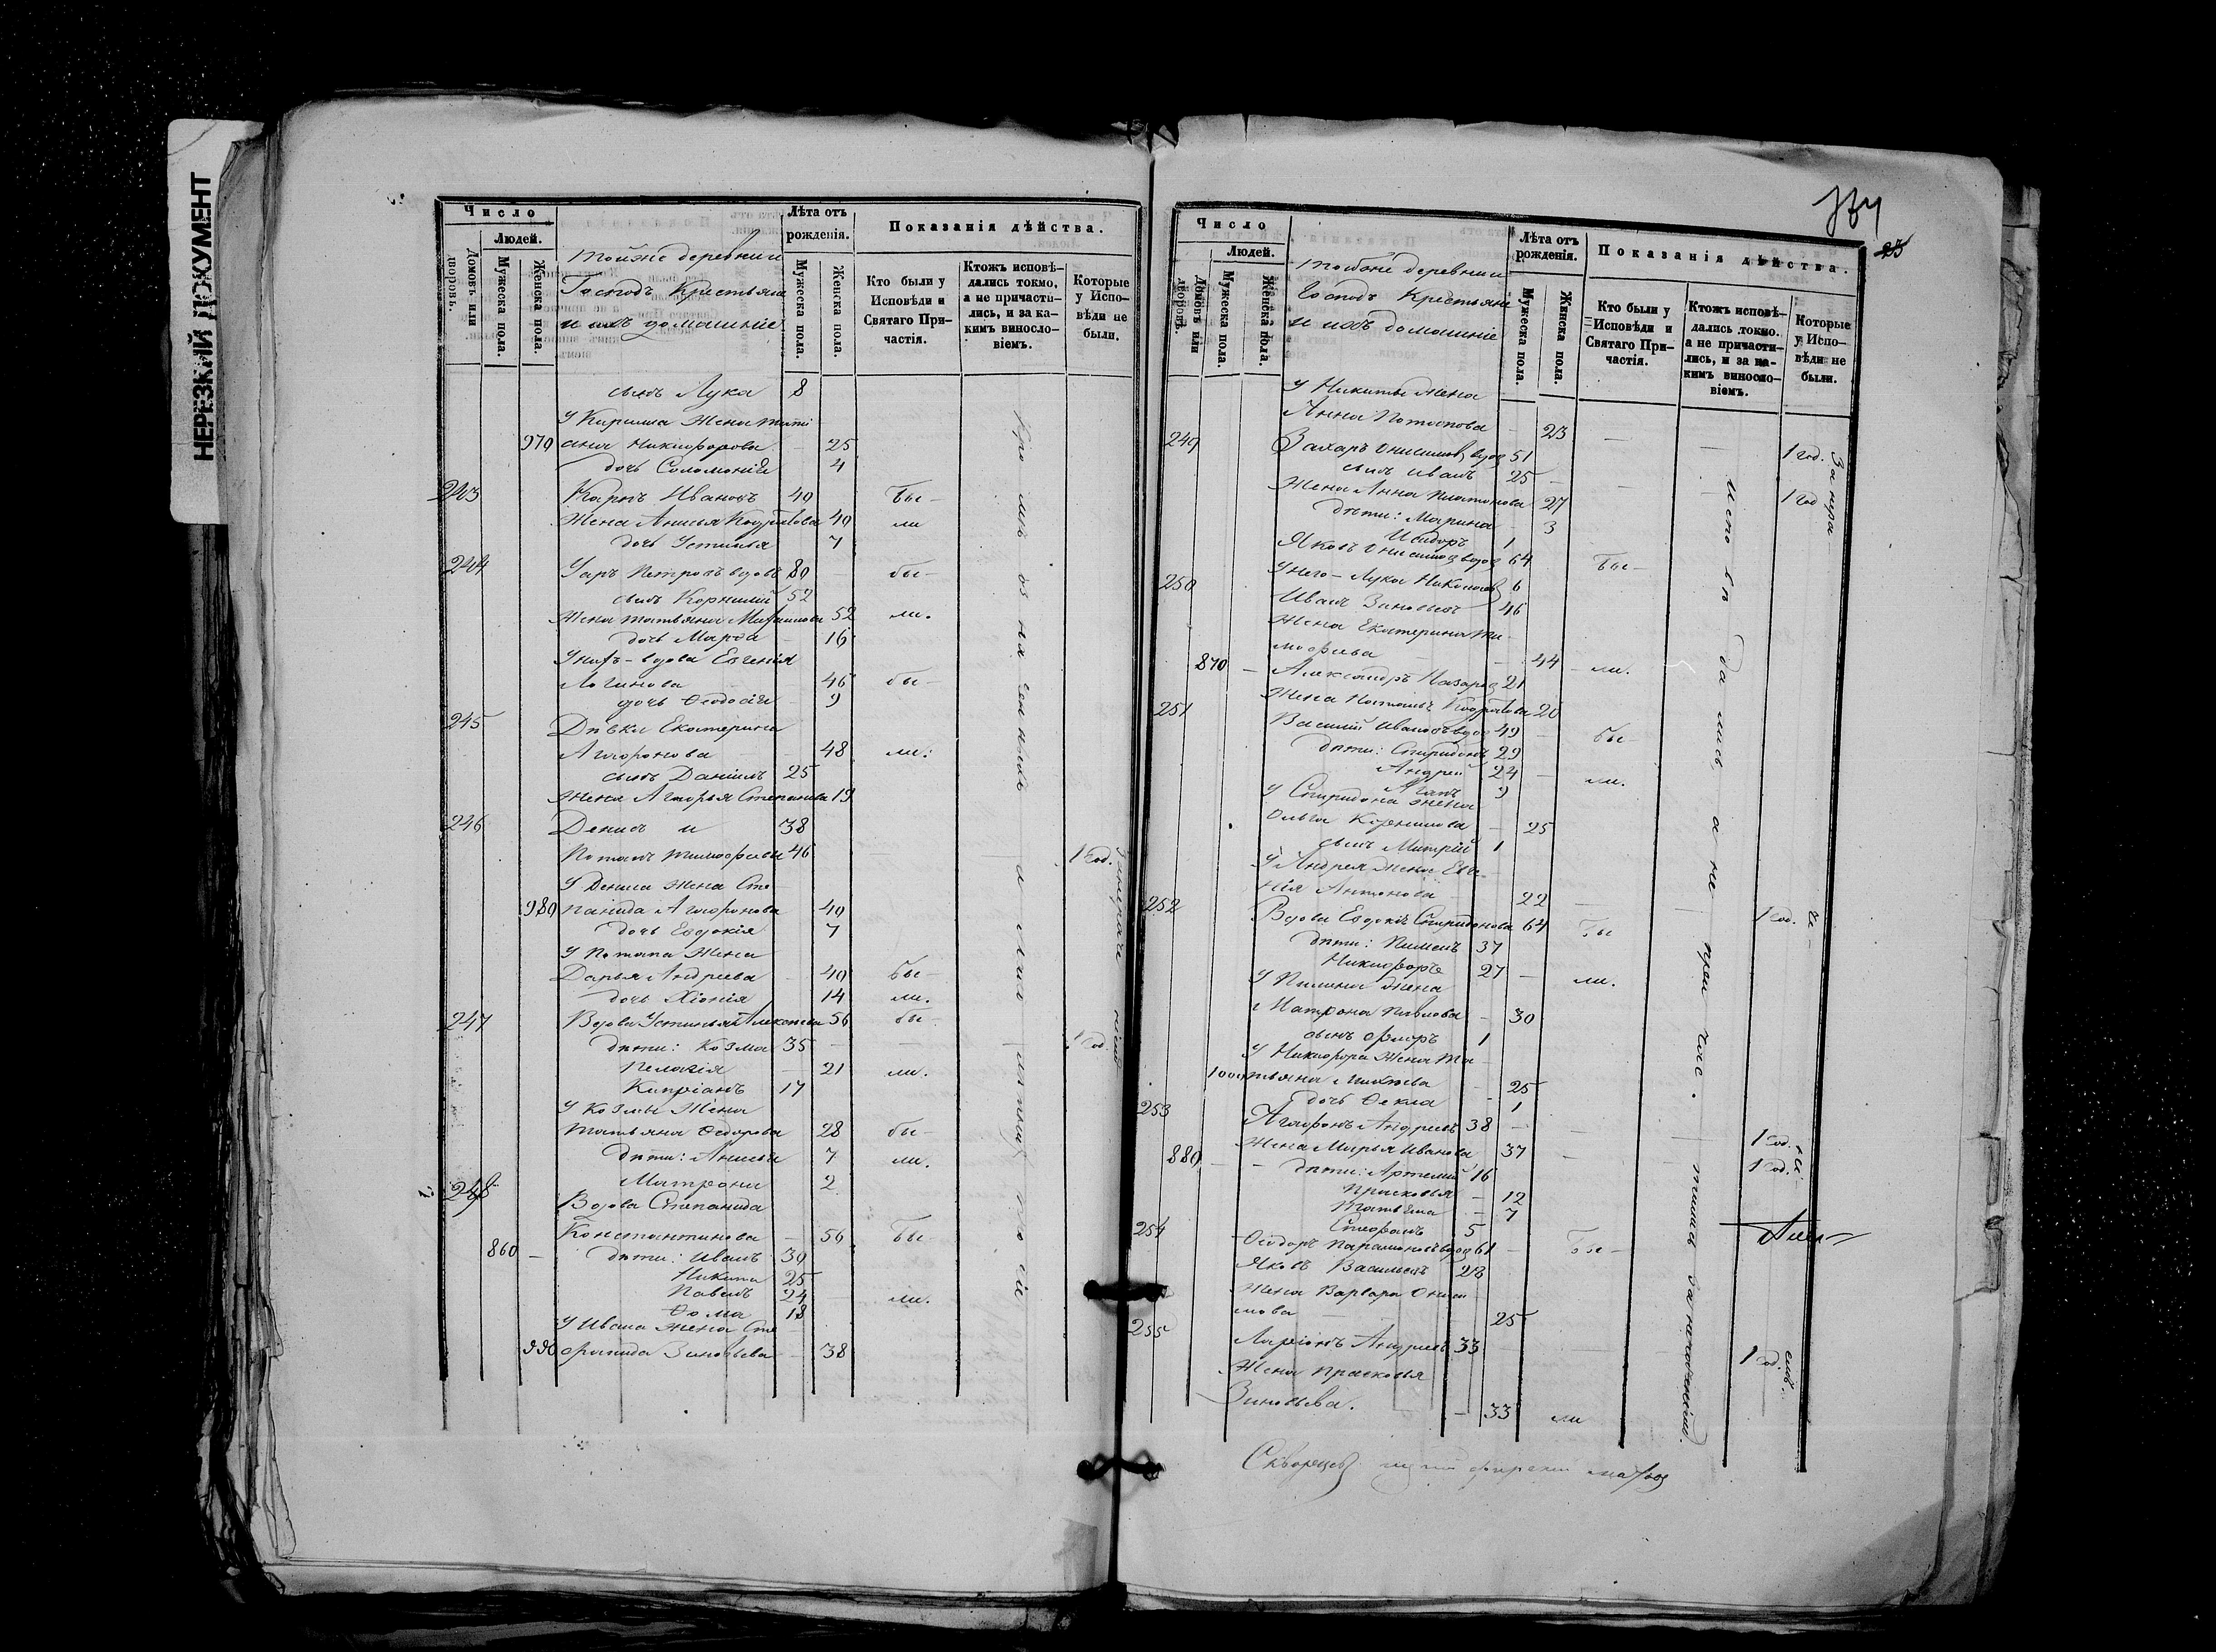 НЕРЕЗКИЙ ДОКУМЕНТ
Число
Людей.
Домовъ или дворовъ.
Мужеска пола.
Женска пола.
тойже деревни
Господъ Крестьяне
и ихъ домашніе
Лѣта отъ рожденія.
Мужеска пола.
Женска пола.
Показанія дѣйства.
Кто были у Исповѣди и Святаго Причастія.
Ктожъ исповѣдались токмо, а не причастились, и за какимъ винословіемъ.
Которые у Исповѣди не были.
сынъ Лука 8
У Кирила Жена Тати
979 ана Никифорова 25
дочь Соломонія 4
243 Карпъ Ивановъ 40 бы-
Жена Анисья Кодратова 40 ли
дочь Устинья 7
244 Уаръ Петровъ вдовъ 80 бы-
сынъ Корнилій 52
Жена Татьяна Михаилова 52 ли.
дочь Марфа 16
У нихъ - вдова Евгенія
Логинова 46 бы-
дочь Ѳеодосія 9
245 Дѣвка Екатерина
Агафонова 48 ли.
сынъ Даніилъ 25
жена Агафья Степанова 19
246 Денисъ и 38
Потапъ Тимофеевы 46 1 год.
У Дениса Жена Сте-
989 панида Агафонова 40
дочь Евдокія 7
У Потапа Жена
Дарья Андреева 40 бы-
дочь Хіонія 14 ли.
247 Вдова Устинья Алексеева 56 бы-
дѣти: Козма 35 1 год
Пелагія 21 ли.
Кипріанъ 17
У Козмы Жена
Татьяна Ѳедорова 28 бы-
дѣти: Анисья 7 ли.
Матрона 2
248 Вдова Степанида
Константинова 56 бы
860 дѣти: Иванъ 39
Никита 25
Павелъ 24 ли.
Ѳома 18
У Ивана жена Сте
990 фанида Зиновьева 38
374
23
Число
Людей.
Домовъ или дворовъ.
Мужеска пола.
Женска пола.
тойже деревни
Господъ Крестьяне
и ихъ домашніе
Лѣта отъ рожденія.
Мужеска пола.
Женска пола.
Показанія дѣйства.
Кто были у Исповѣди и Святаго Причастія.
Ктожъ исповѣдались токмо. а не причастились, и за какимъ винословіемъ.
Которые у Исповѣди не были.
У Никиты жена
Анна Потапова 23
249 Захаръ Онисимов вдов 51 1 год.
сынъ Иванъ 25
Жена Анна Платонова 27 1 год
дѣти: Марина 3
Исидоръ 1
Яковъ Онисимов вдов 64 бы-
250 У него - Лука Николаев 6
Иванъ Зиновьевъ 46
Жена Екатерина Ти-
мофеева 44 ли.
870 Александръ Назаров 21
251 Жена Наталья Кодратова 20
Василій Ивановъ вдов 49 бы
дѣти: Спиридонъ 29
Андрей 24 ли.
9
У Спиридона жена
Ольга Корнилова 25
сынъ Митрій 1
У Андрея жена Евге-
нія Антонова 22
252 Вдова Евдокія Спиридонова 64 бы 1 год.
дѣти: Пименъ 37
Никифоръ 27 ли.
У Пимена жена
Матрона Павлова 30
1
У Никифора жена Та-
1000 тьяна 25
дочь Ѳекла 1
253 Агафонъ Андреевъ 38 1 год.
880 Жена Марья Иванова 37 1 год.
дѣти: Артемій 16
Прасковья 12
Татьяна 7
Стефанъ 5
254 Ѳеодоръ Парамоновъ вдов 61 бы-
Яковъ Васильевъ 28
Жена Варвара Ониси
мова 25
255 Ларіонъ Андреевъ 33 1 год.
Жена Прасковья
Зиновьева. 33 ли